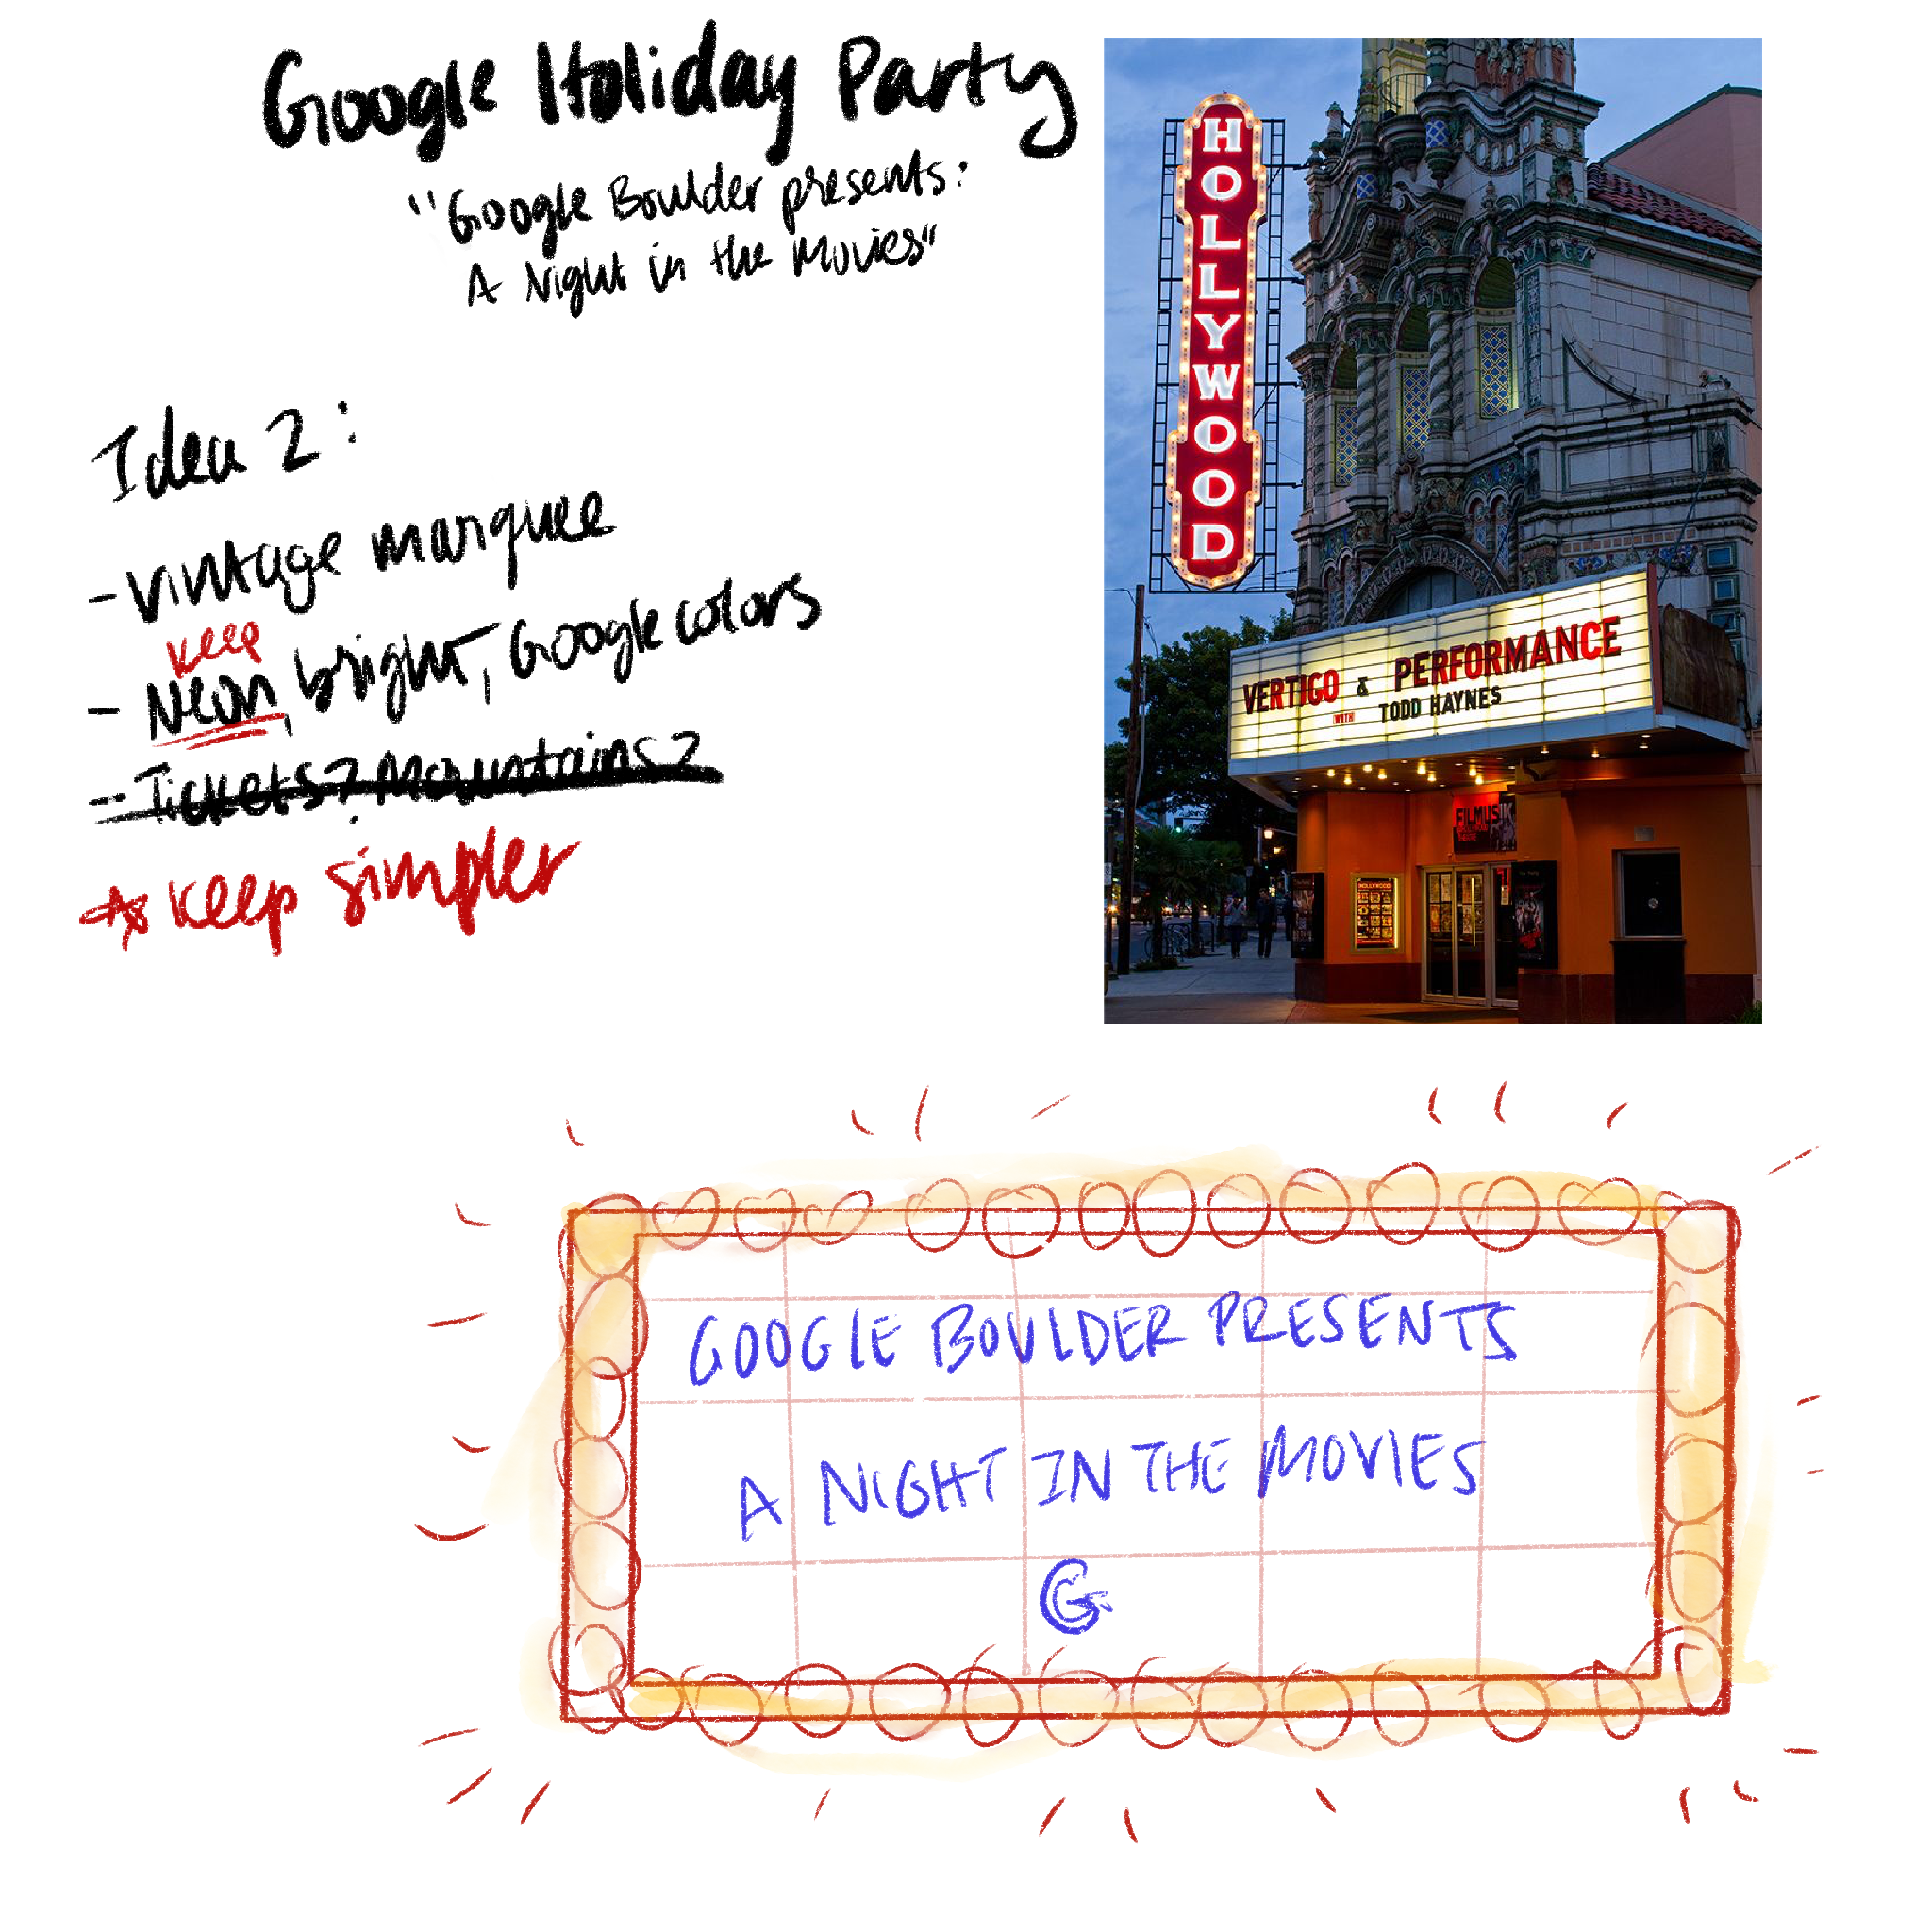 Google Holiday Party
"Google Boulder presents:
A Night in the Movies"
Idea 2:
- vintage marquee
keep
- Neon, bright, Google colors
- Tickets? Mountains?
keep simpler
HOLLYWOOD
VERTIGO & PERFORMANCE
WITH TODD HAYNES
FILMUSIK
HOLLYWOOD
GOOGLE BOULDER PRESENTS
A NIGHT IN THE MOVIES
G